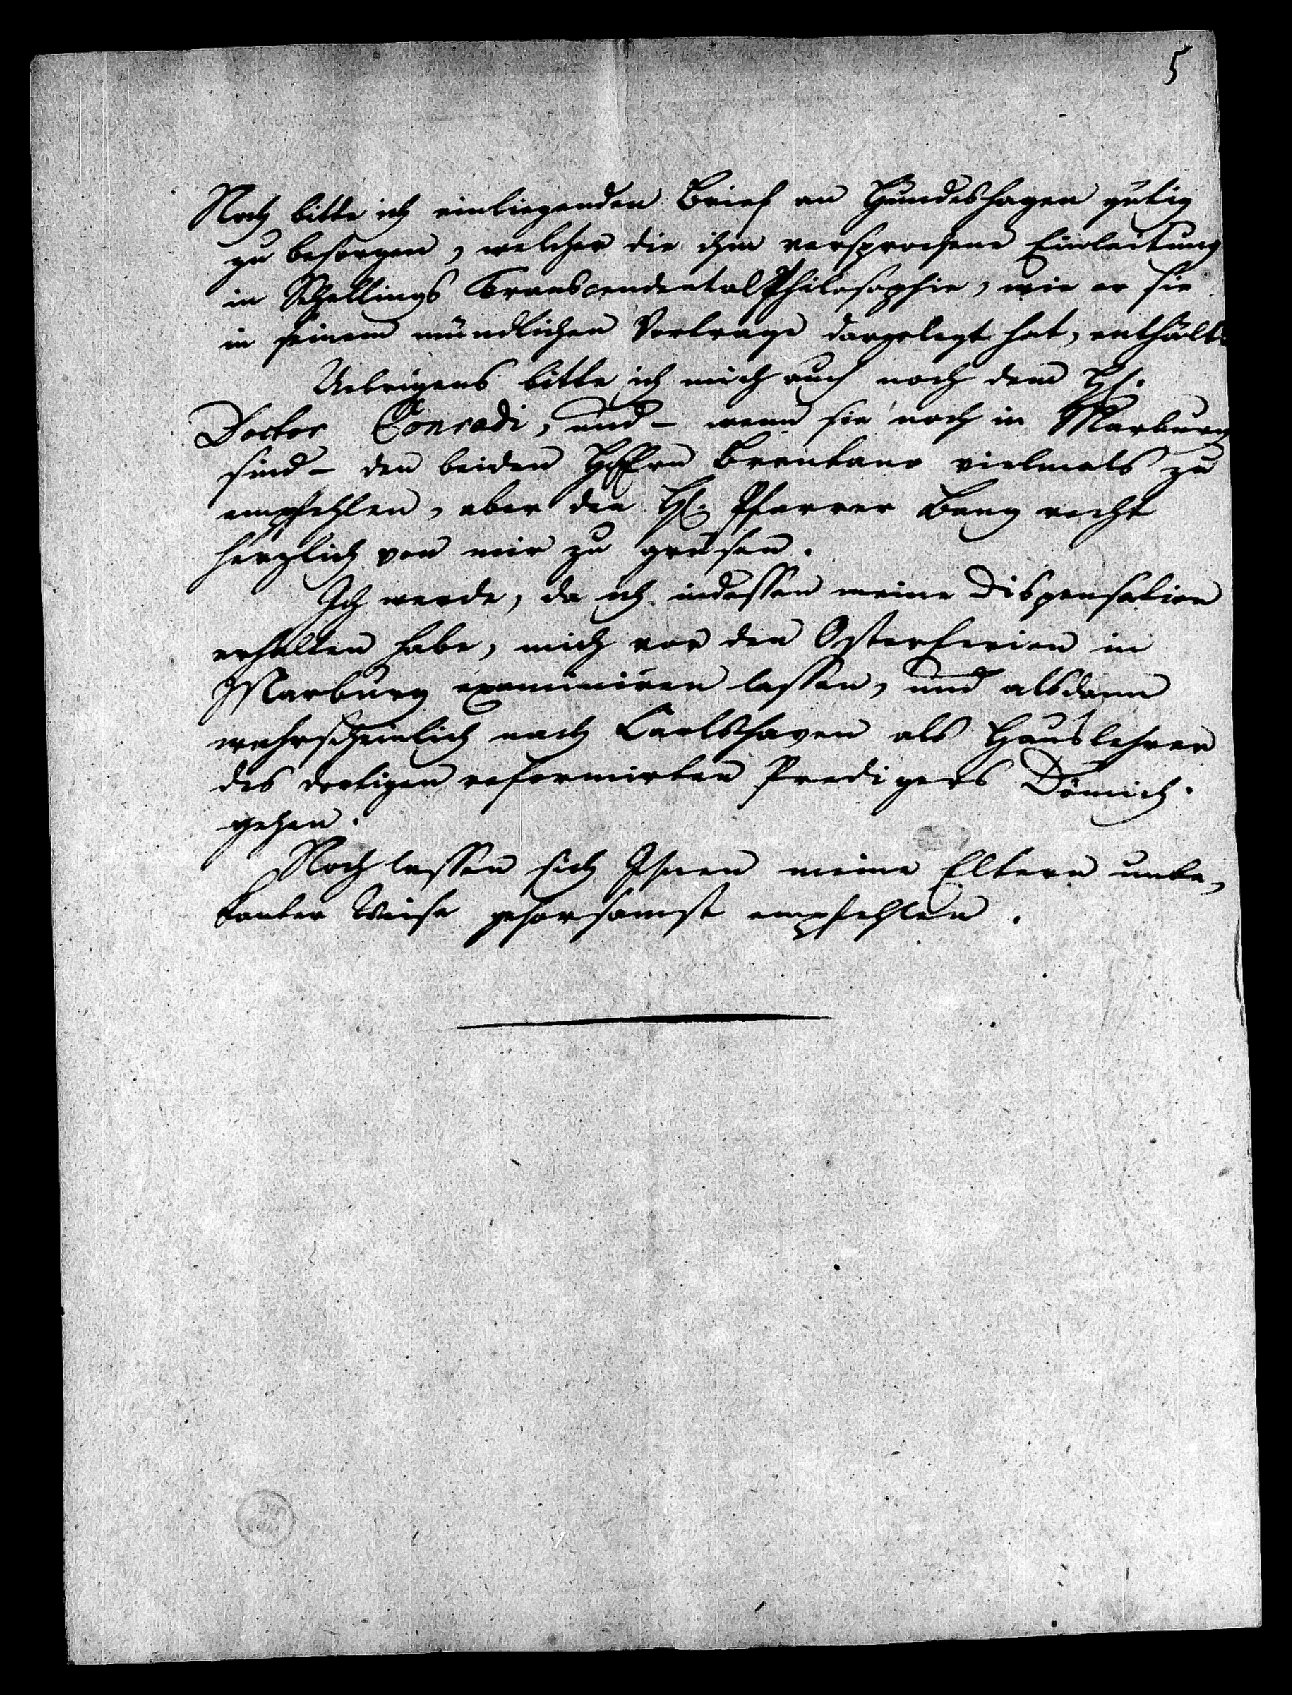 5
Noch bitte ich einliegenden Brief an Hundeshagen gütig
zu besorgen, welcher die ihm versprochene Einleitung
in Schellings TranscendentalPhilosophie, wie er sie
in seinem mündlichen Vortrage dargelegt hat, enthält.
Uebrigens bitte ich mich auch noch dem H.
Doctor Conradi, und – wenn sie noch in Marburg
sind – den beiden HErrn Brentano vielmals zu
empfehlen, aber den H. Pfarrer Bang recht
herzlich von mir zu grüsen.
Ich werde, da ich indessen meine Dispensation
erhalten habe, mich vor den Osterferien in
Marburg examiniren lassen, und alsdann
wahrscheinlich nach Carlshaven als Hauslehrer
des dortigen reformirten Predigers Dömich
gehen.
Noch lassen sich Ihnen meine Eltern unbe,
kanter Weise gehorsamst empfehlen.